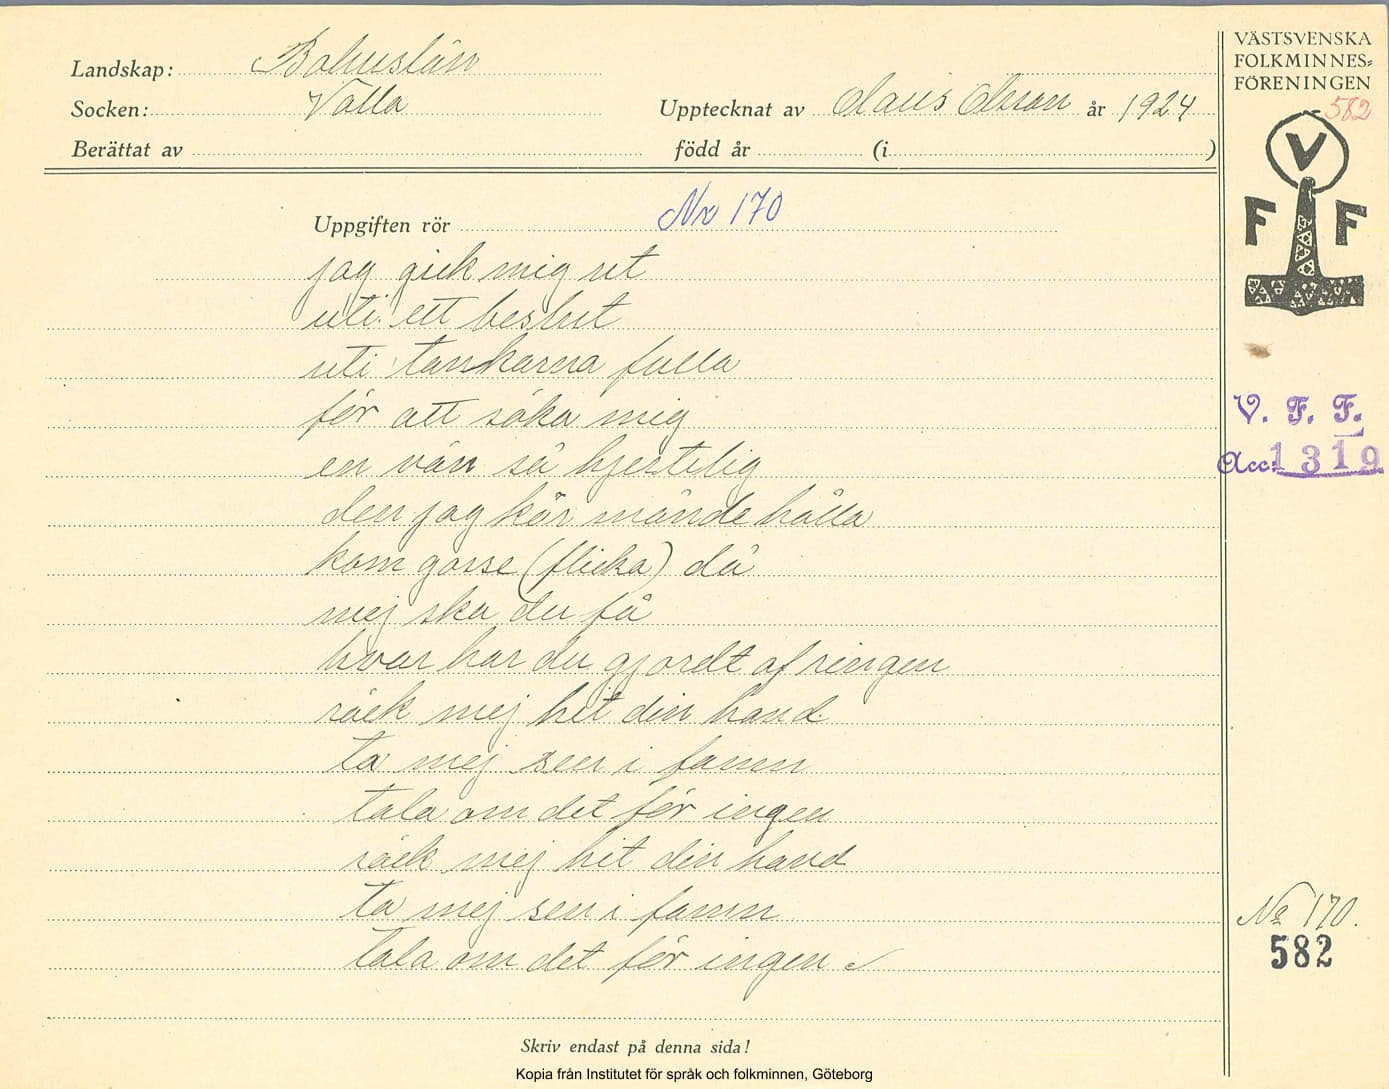 Landskap: Bohuslän
Socken: Valla
Upptecknat av Claus Olsson år 1924
Berättat av
född år (i )
VÄSTSVENSKA
FOLKMINNES=
FÖRENINGEN
582
V
F F
Uppgiften rör Nr 170
jag gick mig ut
uti ett beslut
uti tankarna fulla
för att söka mig
en vän så hjertelig
den jag kär månde hålla
kom gosse (flicka) då
mej ska du få
hvar har du gjordt af ringen
räck mej hit din hand
ta mej sen i famn
tala om det för ingen
räck mej hit din hand
ta mej sen i famn
tala om det för ingen
V. F. F.
Acc. 1319
No 170.
582
Skriv endast på denna sida!
Kopia från Institutet för språk och folkminnen, Göteborg